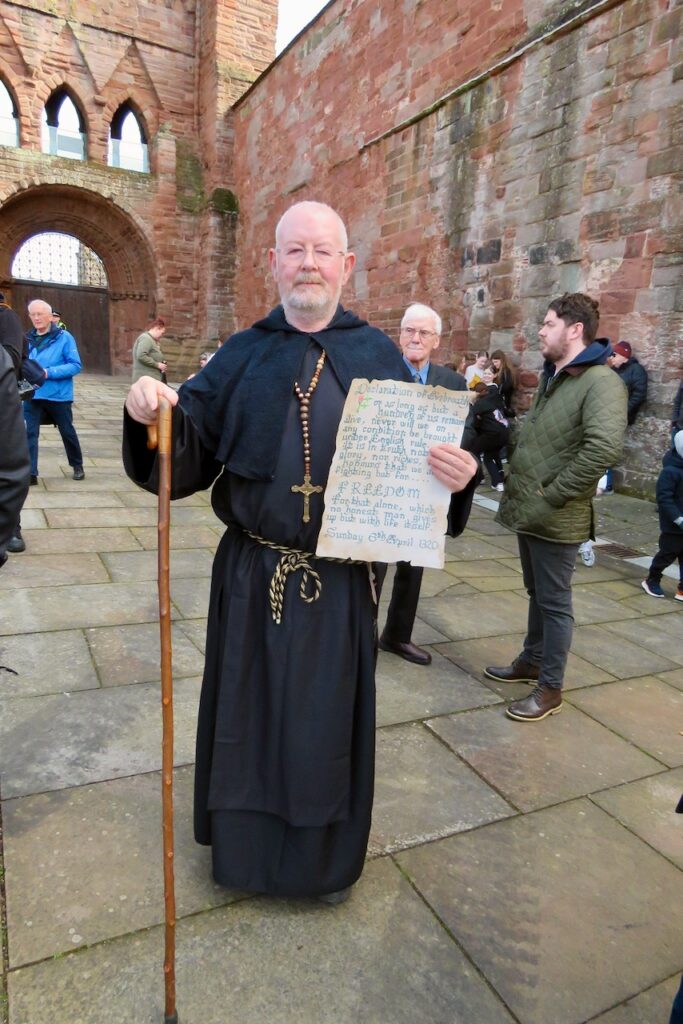 Declaration of Arbroath
For as long as but a
hundred of us remain
alive, never will we on
any condition be brought
under English rule.
It is in truth not
glory, nor riches,
honours that we
fighting but for....
FREEDOM
For that alone, which
no honest man gives
up but with life itself
Sunday 6th April 1320